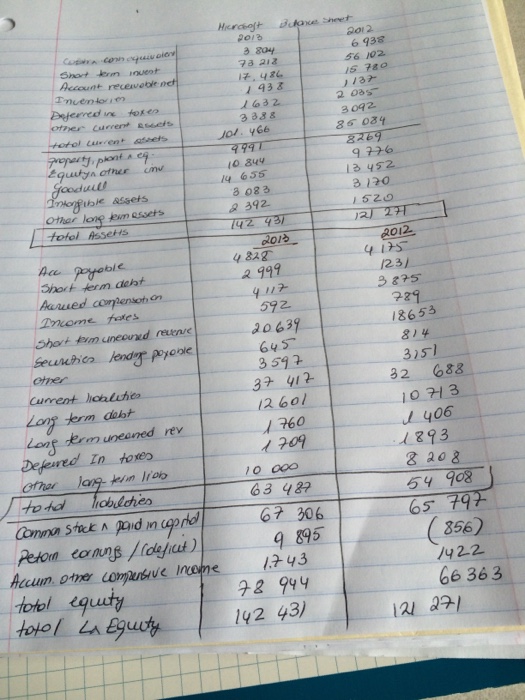 Microsoft Balance sheet
2013 2012
Cash n cash equivalent 3 804 6 938
Short term invent 73 218 56 102
Account receivable net 17,486 15 780
Inventories 1 938 1137
Deferred inc taxes 1632 2 035
other current assets 3388 3092
total current assets 101,466 85 084
property, plant n eq. 9991 8269
Equity n other inv 10 844 9 776
Goodwill 14 655 13 452
Intangible assets 3 083 3.170
Other long term assets 2 392 1520
total Assets 142 431 121 271
2013 2012
Acc payable 4 828 4 175
Short term debt 2 999 1231
Accrued compensation 4117 3 875
Income taxes 592 789
Short term unearned revenue 20639 18653
Securities lending payable 645 814
other 3597 3151
Current liabilities 37 417 32 688
Long term debt 12601 10 713
Long term unearned rev 1760 1 406
Deferred In taxes 1709 1893
Other long-term liab 10 000 8 208
total liabilities 63 487 54 908
Common stock n paid in capital 67 306 65 797
Retain earnings / (deficit) 9 895 (856)
Accum. other compensive income 1743 1422
total equity 78 944 66 363
total L n Equity 142 431 121 271